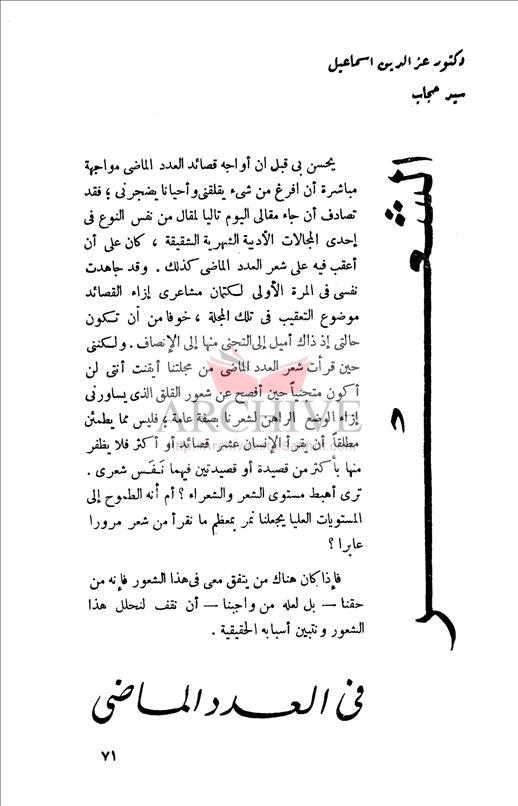 دكتور عز الدين اسماعيل
سيد حجاب
الشعر
يحسن بى قبل ان أواجه قصائد العدد الماضى مواجهة
مباشرة أن افرغ من شىء يقلقنى وأحيانا يضجرنى ؛ فقد
تصادف أن جاء مقالى اليوم تاليا لمقال من نفس النوع فى
إحدى المجالات الأدبية الشهرية الشقيقة ، كان على أن
أعقب فيه على شعر العدد الماضى كذلك . وقد جاهدت
نفسى فى المرة الأولى لكتمان مشاعرى إزاء القصائد
موضوع التعقيب فى تلك المجلة ، خوفا من أن تكون
حالتى إذ ذاك أميل إلى التجنى منها إلى الإنصاف . ولكننى
حين قرأت شعر العدد الماضى من مجلتنا أيقنت أننى لن
أكون متجنياً حين أفصح عن شعور القلق الذى يساورنى
إزاء الوضع الراهن لشعرنا بصفة عامة ؛ فليس مما يطمئن
مطلقاً أن يقرأ الإنسان عشر قصائد أو أكثر فلا يظفر
منها بأكثر من قصيدة أو قصيدتين فيهما نَفَس شعرى .
ترى أهبط مستوى الشعر والشعراء ؟ أم أنه الطموح إلى
المستويات العليا يجعلنا نمر بمعظم ما نقرأ من شعر مرورا
عابرا ؟
فإذا كان هناك من يتفق معى فى هذا الشعور فإنه من
حقنا — بل لعله من واجبنا — أن نقف لنحلل هذا
الشعور ونتبين أسبابه الحقيقية .
فى العدد الماضى
٧١
ARCHIVE